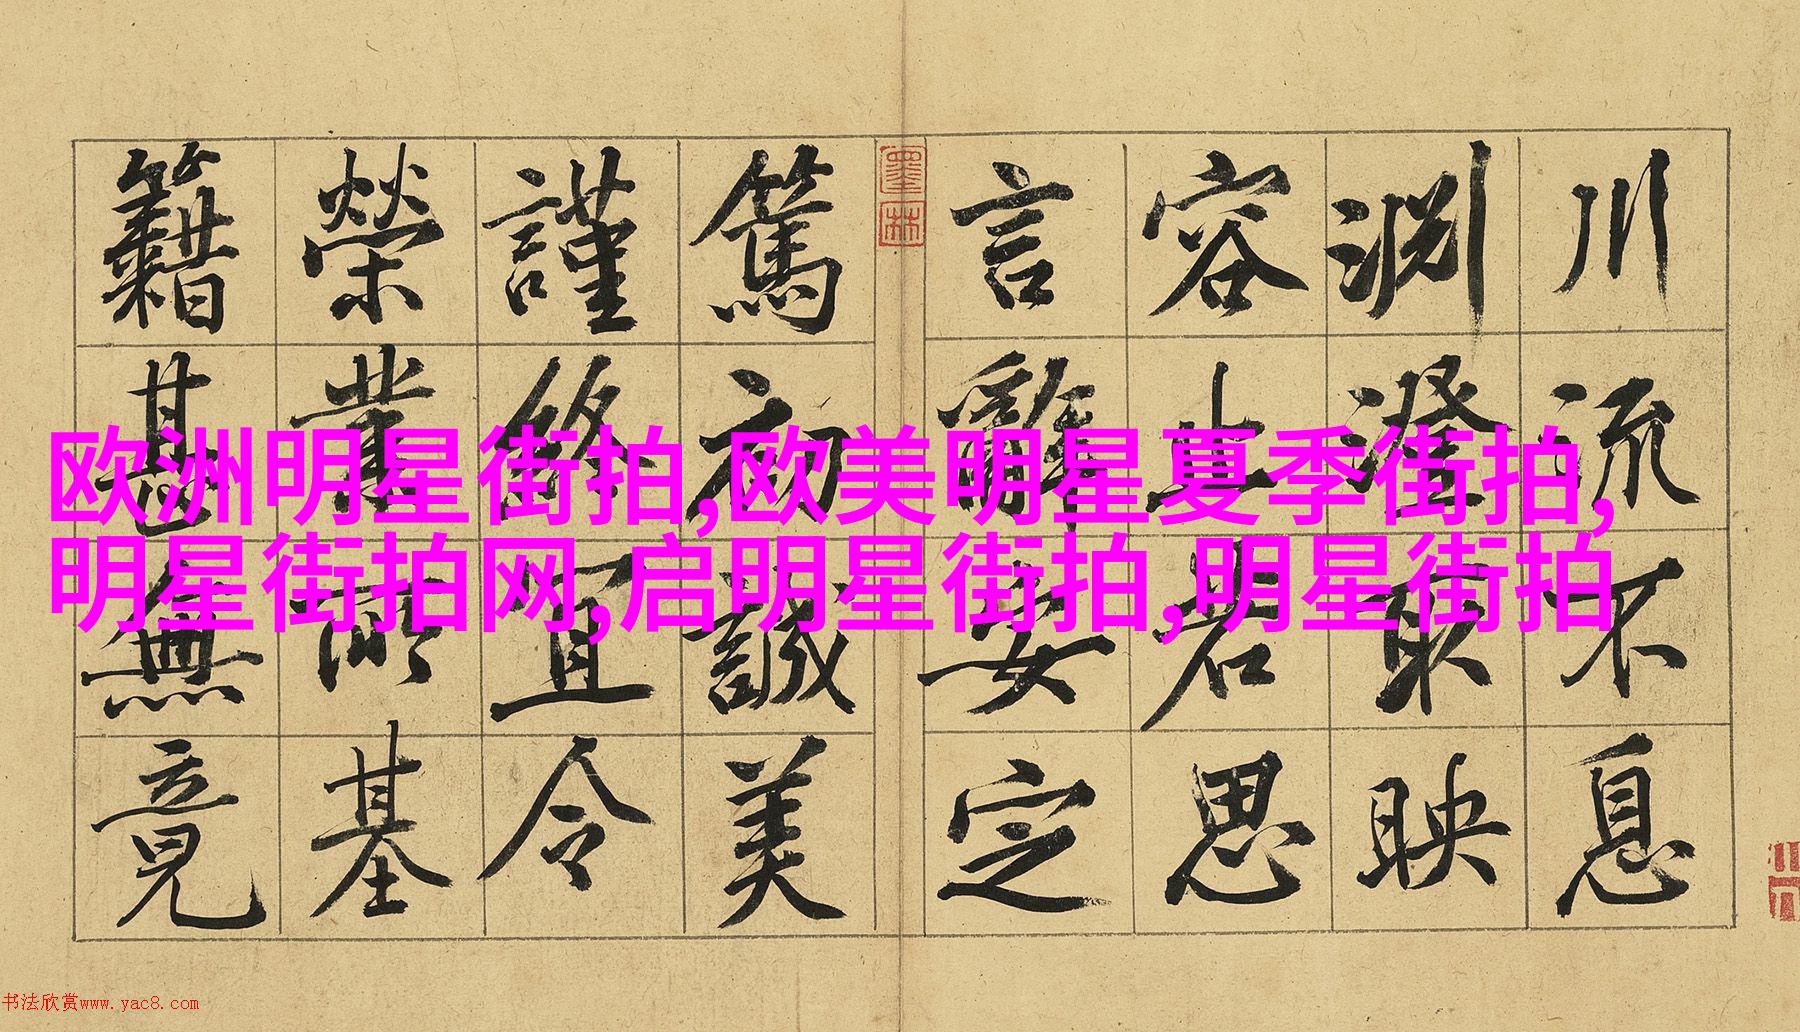 川流不息
淵澄取映
容止若思
言辭安定
篤初誠美
謹終宜令
榮業所基
籍甚無竟
墨林
欧洲明星街拍,欧美明星夏季街拍,
明星街拍网,启明星街拍,明星街拍
书法欣赏www.yac8.com